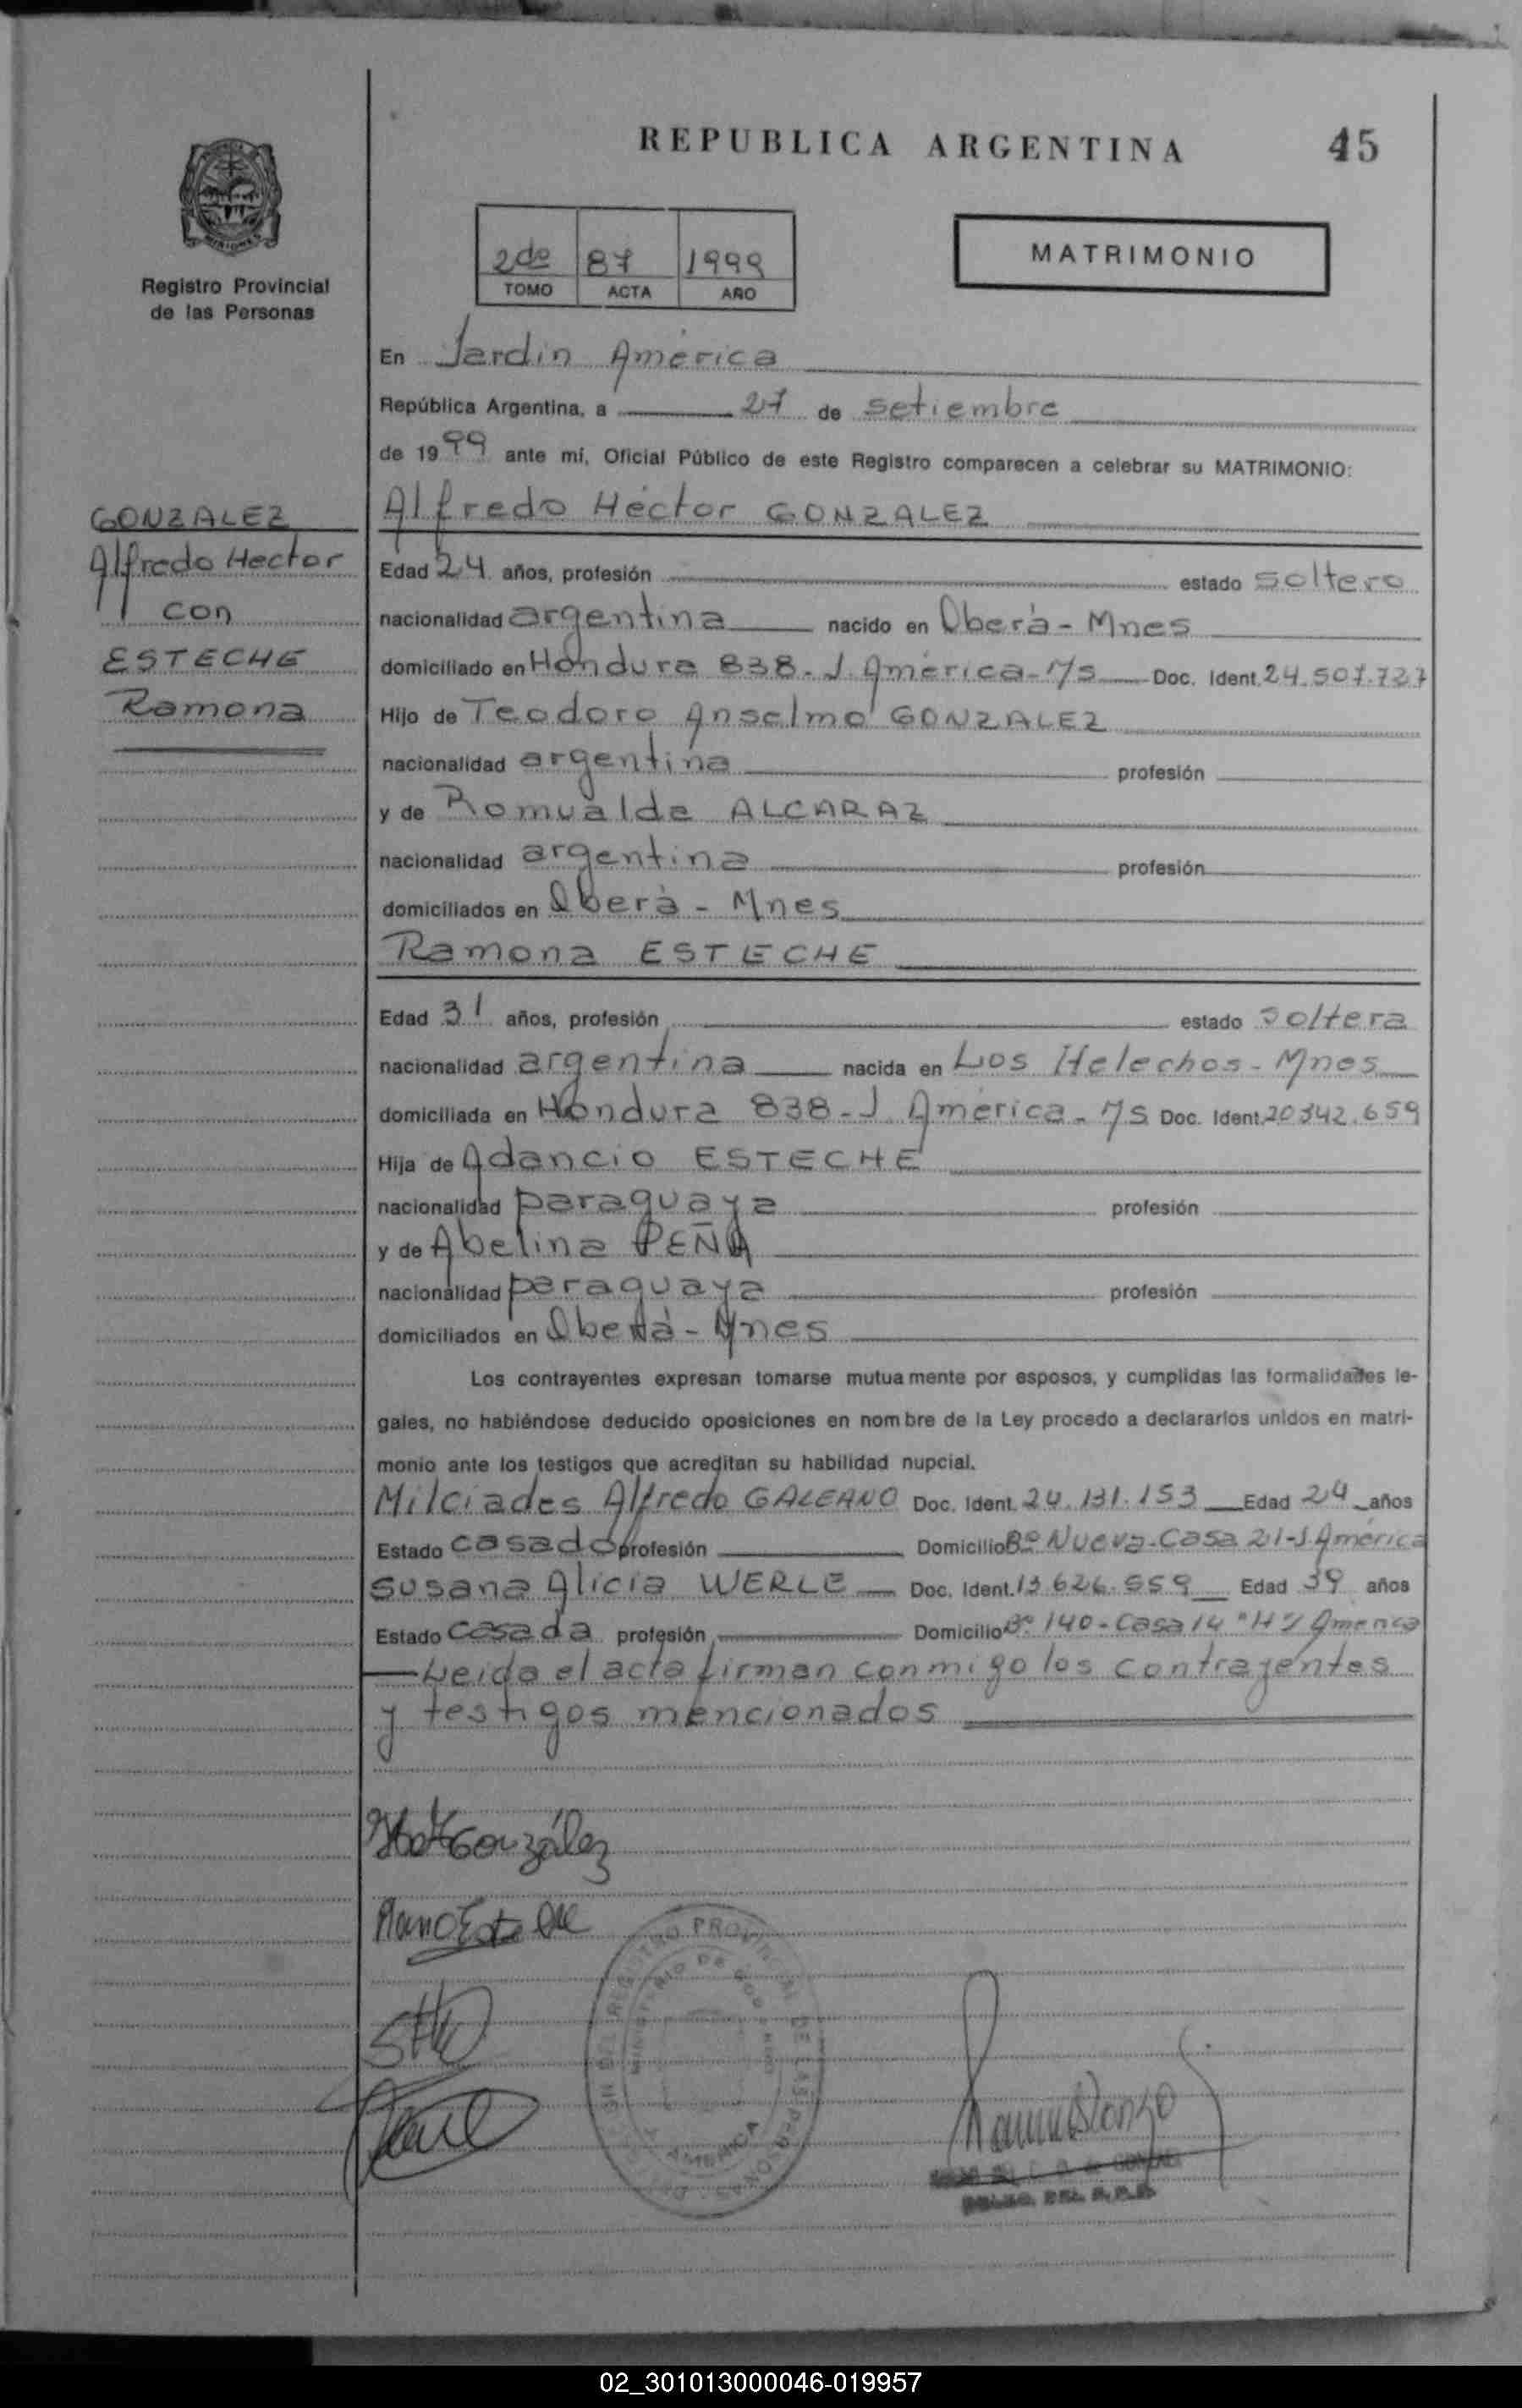 REPUBLICA ARGENTINA
45
MISIONES
Registro Provincial
de las Personas
2do 87 1999
TOMO ACTA AÑO
MATRIMONIO
En Jardin América
República Argentina, a 27 de setiembre
de 1999 ante mí, Oficial Público de este Registro comparecen a celebrar su MATRIMONIO:
GONZALEZ
Alfredo Hector
con
ESTECHE
Ramona
Alfredo Héctor GONZALEZ
Edad 24 años, profesión estado soltero
nacionalidad argentina nacido en Oberà - Mnes
domiciliado en Hondura 838 - J. América - M/s Doc. Ident. 24.507.727
Hijo de Teodoro Anselmo GONZALEZ
nacionalidad argentina profesión
y de Romualda ALCARAZ
nacionalidad argentina profesión
domiciliados en Oberà - Mnes
Ramona ESTECHE
Edad 31 años, profesión estado soltera
nacionalidad argentina nacida en Los Helechos - Mnes
domiciliada en Hondura 838 - J. América - M/s Doc. Ident. 20.342.659
Hija de Adancio ESTECHE
nacionalidad paraguaya profesión
y de Abelina PEÑA
nacionalidad paraguaya profesión
domiciliados en Oberá - Mnes
Los contrayentes expresan tomarse mutuamente por esposos, y cumplidas las formalidades le-
gales, no habiéndose deducido oposiciones en nombre de la Ley procedo a declararlos unidos en matri-
monio ante los testigos que acreditan su habilidad nupcial.
Milciades Alfredo GALEANO Doc. Ident. 24.131.153 Edad 24 años
Estado casado profesión Domicilio Bº Nueva - Casa 21 - J. América
Susana Alicia WERLE Doc. Ident. 13.626.559 Edad 39 años
Estado casada profesión Domicilio Bº 140 - Casa 14 "H" J América
Leida el acta firman conmigo los contrayentes
y testigos mencionados
González
REGISTRO PROVINCIAL DE LAS PERSONAS
MINISTERIO DE GOBIERNO
AMERICA
DEL R.P.P.
02_301013000046-019957